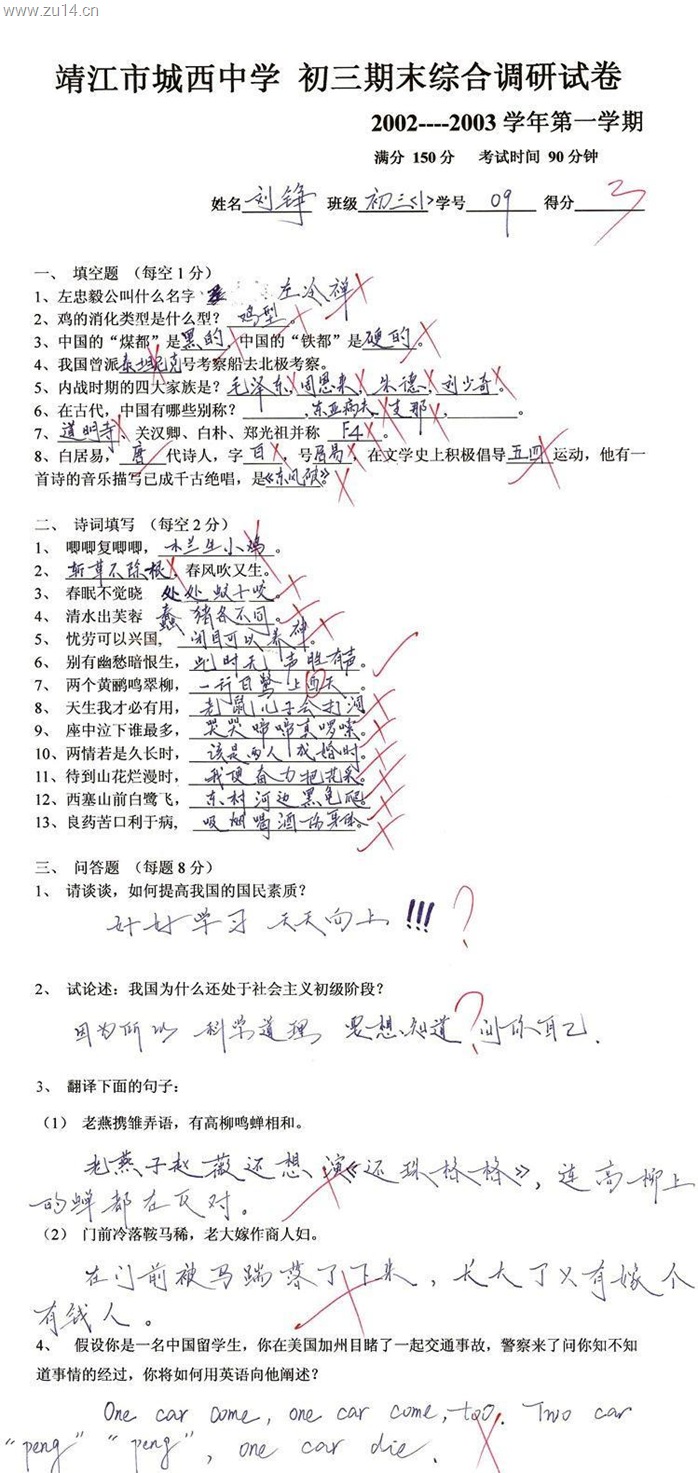 www.zu14.cn
靖江市城西中学 初三期末综合调研试卷
2002----2003 学年第一学期
满分 150 分 考试时间 90 分钟
姓名 刘铮 班级 初三<1> 学号 09 得分 3
一、 填空题 （每空 1 分）
1、左忠毅公叫什么名字 左冷禅
2、鸡的消化类型是什么型？ 鸡型 。
3、中国的“煤都”是黑的，中国的“铁都”是硬的。
4、我国曾派泰坦尼克号考察船去北极考察。
5、内战时期的四大家族是？毛泽东，周恩来，朱德，刘少奇。
6、在古代，中国有哪些别称？ ，东亚病夫，支那， 。
7、道明寺、关汉卿、白朴、郑光祖并称 F4 。
8、白居易，唐代诗人，字 白 ，号居易，在文学史上积极倡导五四运动，他有一
首诗的音乐描写已成千古绝唱，是《东风破》。
二、 诗词填写 （每空 2 分）
1、 唧唧复唧唧，木兰生小鸡。
2、 斩草不除根，春风吹又生。
3、 春眠不觉晓 处处蚊子咬。
4、 清水出芙蓉 蠢猪各不同。
5、 忧劳可以兴国，闭目可以养神。
6、 别有幽愁暗恨生，此时无声胜有声。
7、 两个黄鹂鸣翠柳，一行白鹭上西天。
8、 天生我才必有用，老鼠儿子会打洞
9、 座中泣下谁最多，哭哭啼啼真啰嗦。
10、两情若是久长时，该是两人成婚时。
11、待到山花烂漫时，我便奋力把花采。
12、西塞山前白鹭飞，东村河边黑龟爬。
13、良药苦口利于病，吸烟喝酒伤身体。
三、 问答题 （每题 8 分）
1、 请谈谈，如何提高我国的国民素质？
好好学习 天天向上 !!! ?
2、 试论述：我国为什么还处于社会主义初级阶段？
因为所以 科学道理 要想知道 ? 问你自己.
3、 翻译下面的句子：
（1） 老燕携雏弄语，有高柳鸣蝉相和。
老燕子赵薇还想演《还珠格格》，连高柳上
的蝉都在反对。
（2） 门前冷落鞍马稀，老大嫁作商人妇。
在门前被马踹落了下来，长大了又有嫁个
有钱人。
4、 假设你是一名中国留学生，你在美国加州目睹了一起交通事故，警察来了问你知不知
道事情的经过，你将如何用英语向他阐述？
One car come, one car come, too. Two car
“peng” “peng”, one car die.